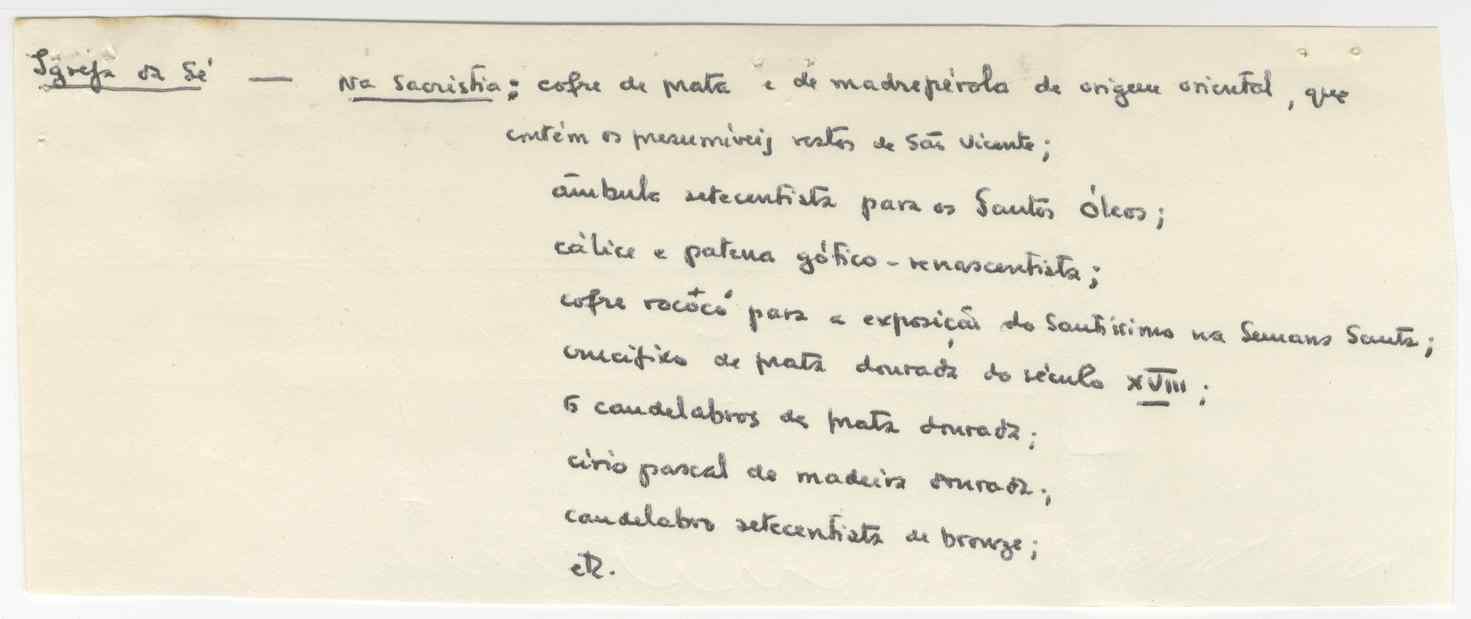 Igreja da Sé — Na Sacristia: cofre de prata e de madrepérola de origem oriental, que
contém os presumíveis restos de São Vicente;
âmbula setecentista para os Santos Óleos;
cálice e patena gótico-renascentista;
cofre rócócó para a exposição do Santíssimo na Semana Santa;
crucifixo de prata dourada do século XVIII;
6 candelabros de prata dourada;
círio pascal de madeira dourada;
candelabro setecentista de bronze;
etc.